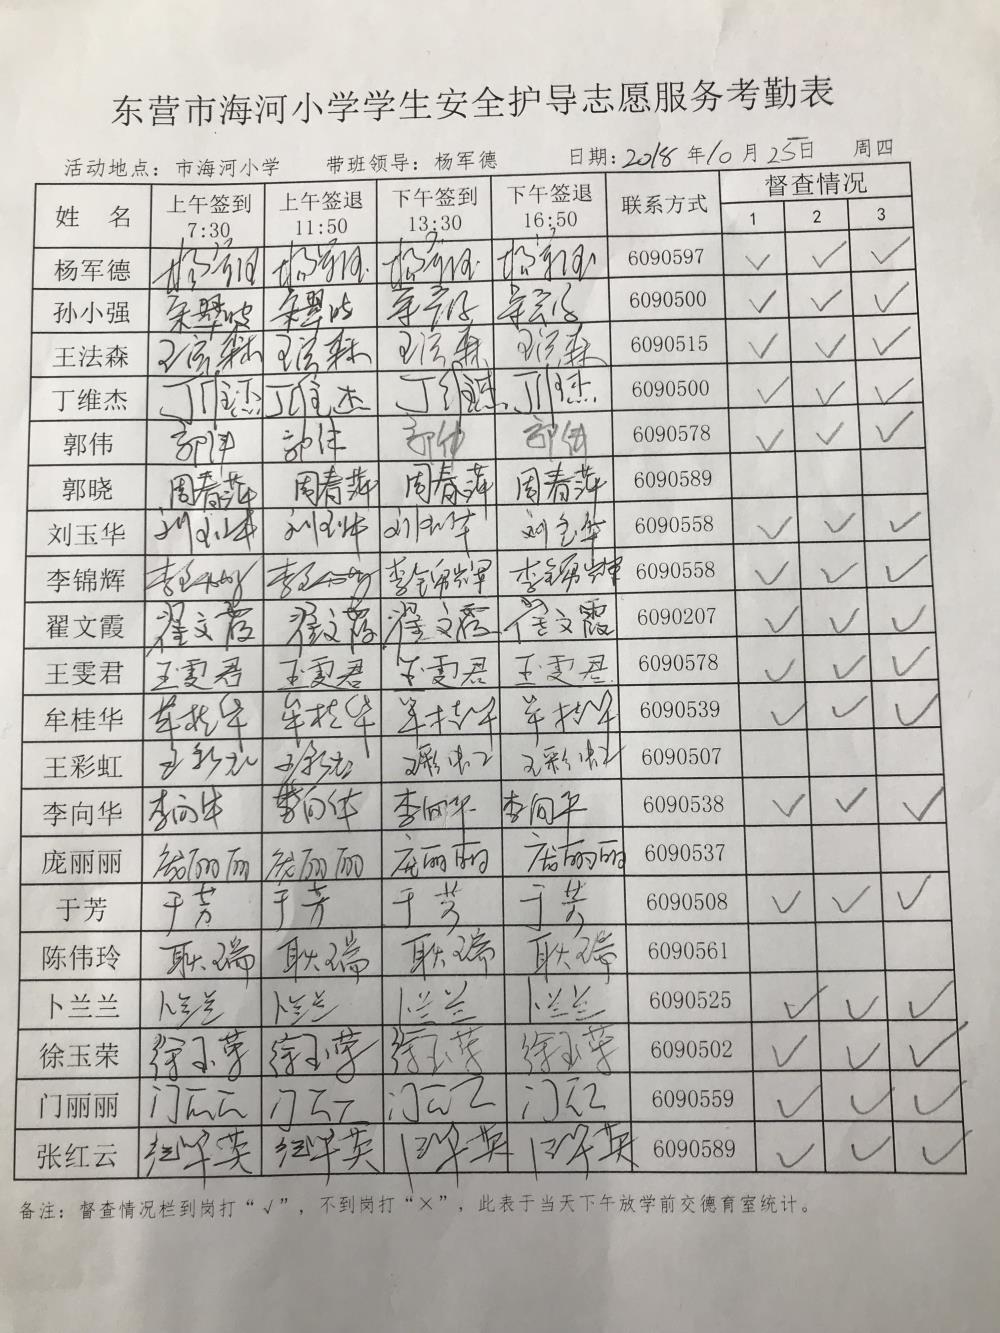 东营市海河小学学生安全护导志愿服务考勤表
活动地点：市海河小学 带班领导：杨军德 日期：2018年10月25日 周四
姓 名 上午签到 7:30 上午签退 11:50 下午签到 13:30 下午签退 16:50 联系方式 督查情况 1 2 3
杨军德 杨军德 杨军德 杨军德 杨军德 6090597 ✓ ✓ ✓
孙小强 6090500 ✓ ✓ ✓
王法森 王法森 王法森 王法森 王法森 6090515 ✓ ✓ ✓
丁维杰 丁维杰 丁维杰 丁维杰 丁维杰 6090500 ✓ ✓ ✓
郭伟 郭伟 郭伟 郭伟 郭伟 6090578 ✓ ✓ ✓
郭晓 周春萍 周春萍 周春萍 周春萍 6090589
刘玉华 刘玉华 刘玉华 刘玉华 刘玉华 6090558 ✓ ✓ ✓
李锦辉 李锦辉 李锦辉 6090558 ✓ ✓ ✓
翟文霞 翟文霞 翟文霞 翟文霞 翟文霞 6090207 ✓ ✓ ✓
王雯君 王雯君 王雯君 王雯君 王雯君 6090578 ✓ ✓ ✓
牟桂华 牟桂华 牟桂华 牟桂华 牟桂华 6090539 ✓ ✓ ✓
王彩虹 王彩虹 王彩虹 王彩虹 王彩虹 6090507
李向华 李向华 李向华 李向华 李向华 6090538 ✓ ✓ ✓
庞丽丽 庞丽丽 庞丽丽 庞丽丽 庞丽丽 6090537
于芳 于芳 于芳 于芳 于芳 6090508 ✓ ✓ ✓
陈伟玲 耿瑞 耿瑞 耿瑞 耿瑞 6090561
卜兰兰 卜兰兰 卜兰兰 卜兰兰 卜兰兰 6090525 ✓ ✓ ✓
徐玉荣 徐玉荣 徐玉荣 徐玉荣 徐玉荣 6090502 ✓ ✓ ✓
门丽丽 6090559 ✓ ✓ ✓
张红云 6090589 ✓ ✓ ✓
备注：督查情况栏到岗打“√”，不到岗打“×”，此表于当天下午放学前交德育室统计。